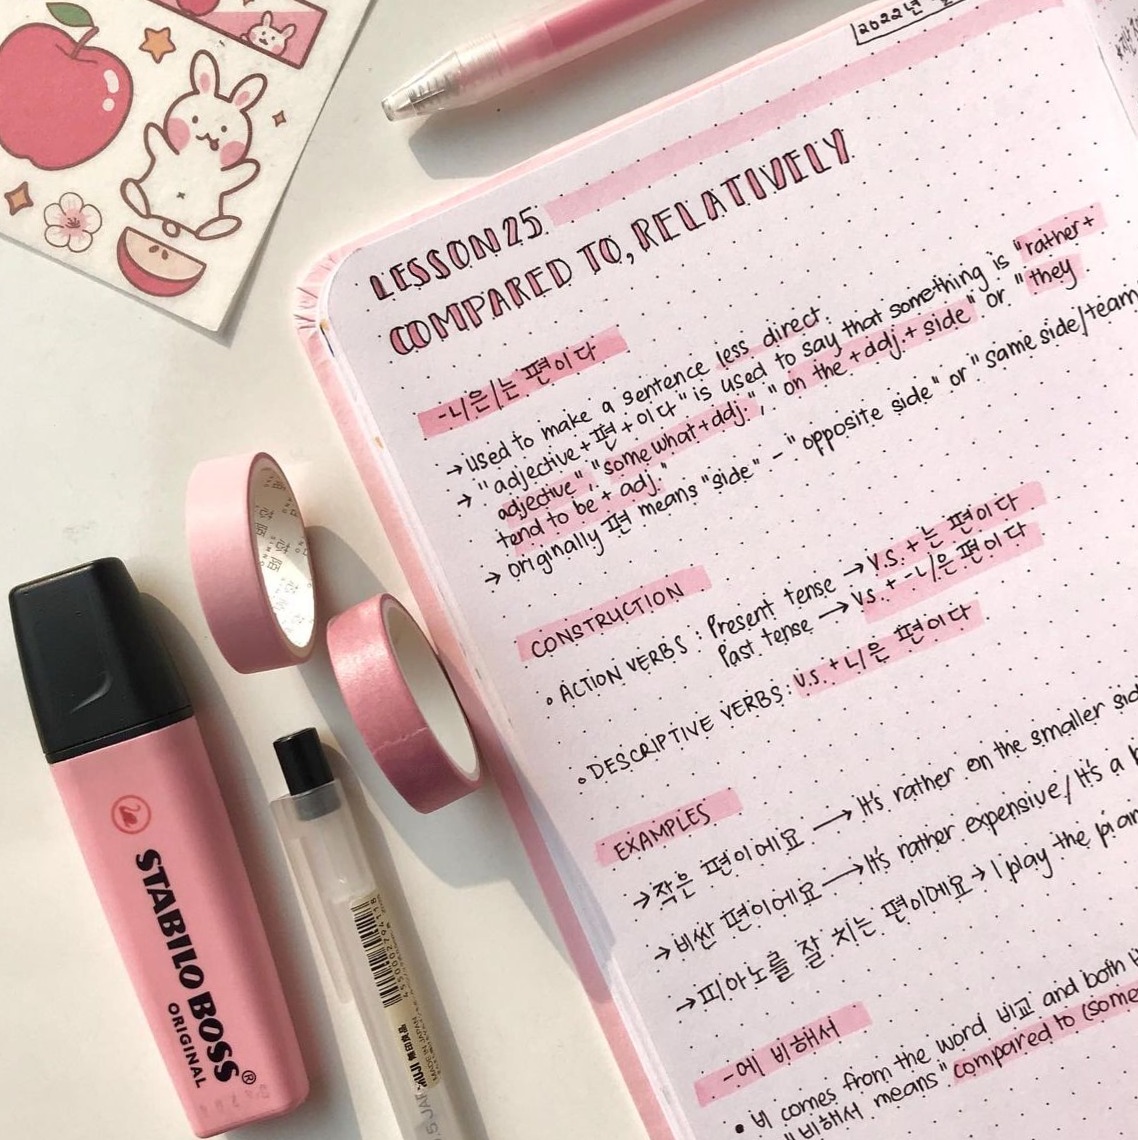 2022년
LESSON 25
COMPARED TO, RELATIVELY
-ㄴ/은/는 편이다
→ used to make a sentence less direct.
→ "adjective + 편 + 이다" is used to say that something is "rather +
adjective", "somewhat + adj.", "on the + adj. + side" or "they
tend to be + adj."
→ originally 편 means "side" - "opposite side" or "same side/team
CONSTRUCTION
• ACTION VERBS : Present tense → V.S. + 는 편이다
Past tense → V.S. + -ㄴ/은 편이다
• DESCRIPTIVE VERBS: V.S. + ㄴ/은 편이다
EXAMPLES
→ 작은 편이에요 → It's rather on the smaller
→ 비싼 편이에요 → It's rather expensive/It's a
→ 피아노를 잘 치는 편이에요 → I play the
-에 비해서
• 비 comes from the word 비교 and both
"비해서 means "compared to
STABILO BOSS®
ORIGINAL
4550002794118
MUJI 無印良品
MADE IN JAPAN